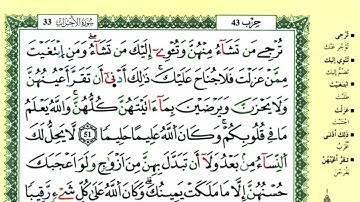 33 سُورَةُ الأَحْزَاب
حزب 43
تُرْجِي مَن تَشَآءُ مِنْهُنَّ وَتُـْٔوِىٓ إِلَيْكَ مَن تَشَآءُ ۖ وَمَنِ ٱبْتَغَيْتَ
مِمَّنْ عَزَلْتَ فَلَا جُنَاحَ عَلَيْكَ ۚ ذَٰلِكَ أَدْنَىٰٓ أَن تَقَرَّ أَعْيُنُهُنَّ
وَلَا يَحْزَنَّ وَيَرْضَيْنَ بِمَآ ءَاتَيْتَهُنَّ كُلُّهُنَّ ۚ وَٱللَّهُ يَعْلَمُ
مَا فِى قُلُوبِكُمْ ۚ وَكَانَ ٱللَّهُ عَلِيمًا حَلِيمًا 51 لَّا يَحِلُّ لَكَ
ٱلنِّسَآءُ مِنۢ بَعْدُ وَلَآ أَن تَبَدَّلَ بِهِنَّ مِنْ أَزْوَٰجٍ وَلَوْ أَعْجَبَكَ
حُسْنُهُنَّ إِلَّا مَا مَلَكَتْ يَمِينُكَ ۗ وَكَانَ ٱللَّهُ عَلَىٰ كُلِّ شَىْءٍ رَّقِيبًا
تُرْجِي
تُؤَخِّرُ عَنْكَ
تُئْوِي إليك
تَضُمُّ إِلَيْكَ
ابْتَغَيْتَ
طَلَبْتَ
عَزَلْتَ
اجْتَنَبْتَ
ذلك أَدْنَى
أَقْرَبُ
تَقَرَّ أَعْيُنُهُنَّ